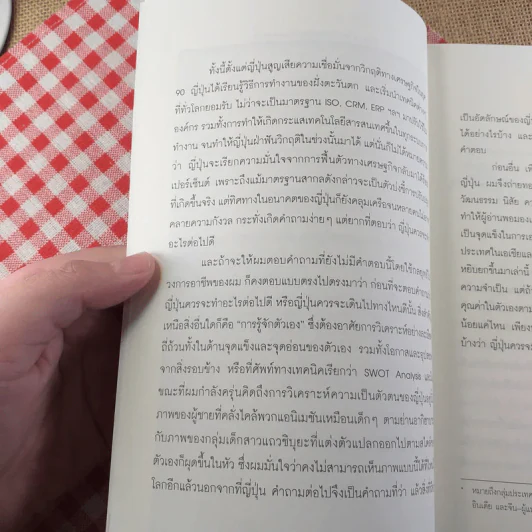 ทั้งนี้ตั้งแต่ญี่ปุ่นสูญเสียความเชื่อมั่นจากวิกฤติทางเศรษฐกิจใน
90 ญี่ปุ่นได้เรียนรู้วิธีการทำงานของฝั่งตะวันตก และเริ่มนำเทคนิค
ที่ทั่วโลกยอมรับ ไม่ว่าจะเป็นมาตรฐาน ISO, CRM, ERP ฯลฯ มาปรับใช้
องค์กร รวมทั้งการทำให้เกิดกระแสเทคโนโลยีสารสนเทศขึ้นในทุก
ทำงาน จนทำให้ญี่ปุ่นฝ่าฟันวิกฤติในช่วงนั้นมาได้ แต่นั่นก็ไม่ได้หมายความ
ว่า ญี่ปุ่นจะเรียกความมั่นใจจากการฟื้นตัวทางเศรษฐกิจกลับมาได้
เปอร์เซ็นต์ เพราะถึงแม้มาตรฐานสากลดังกล่าวจะเป็นตัวบ่งชี้การ
ที่เกิดขึ้นจริง แต่ทิศทางในอนาคตของญี่ปุ่นก็ยังคลุมเครือจนหลายคน
คลายความกังวล กระทั่งเกิดคำถามง่ายๆ แต่ยากที่ตอบว่า ญี่ปุ่นควรจะ
อะไรต่อไปดี
และถ้าจะให้ผมตอบคำถามที่ยังไม่มีคำตอบนี้โดยใช้
วงการอาชีพของผม ก็คงตอบแบบตรงไปตรงมาว่า ก่อนที่จะตอบคำถาม
ญี่ปุ่นควรจะทำอะไรต่อไปดี หรือญี่ปุ่นควรจะเดินไปทางไหนดีนั้น
เหนือสิ่งอื่นใดก็คือ “การรู้จักตัวเอง” ซึ่งต้องอาศัยการวิเคราะห์อย่างละเอียด
ถี่ถ้วนทั้งในด้านจุดแข็งและจุดอ่อนของตัวเอง รวมทั้งโอกาสและ
จากสิ่งรอบข้าง หรือที่ศัพท์ทางเทคนิคเรียกว่า SWOT Analysis และ
ขณะที่ผมกำลังครุ่นคิดถึงการวิเคราะห์ความเป็นตัวตนของญี่ปุ่น
ภาพของผู้ชายที่คลั่งไคล้พวกแอนิเมชันเหมือนเด็กๆ ตามย่าน
กับภาพของกลุ่มเด็กสาวแถวชิบุยะที่แต่งตัวแปลกออกไปตามสไตล์
ตัวเองก็ผุดขึ้นในหัว ซึ่งผมมั่นใจว่าคงไม่สามารถเห็นภาพแบบนี้ได้ที่ไหน
โลกอีกแล้วนอกจากที่ญี่ปุ่น คำถามต่อไปจึงเป็นคำถามที่ว่า แล้วสิ่ง
เป็นอัตลักษณ์ของญี่
ได้อย่างไรบ้าง และ
คำตอบ
ก่อนอื่น
ญี่ปุ่น ผมจึงถ่าย
วัฒนธรรม นิสัย
ทำให้ผู้อ่านพอมอง
เป็นจุดแข็งในการ
ประเทศในเอเชียและ
หยิบยกขึ้นมาเล่านี้
ความจำเป็น แต่ถ้า
คุณค่าในตัวเองตาม
น้อยแค่ไหน เพียง
บ้างว่า ญี่ปุ่นควรจะ
* หมายถึงกลุ่มประเทศ
อินเดีย และจีน-ผู้